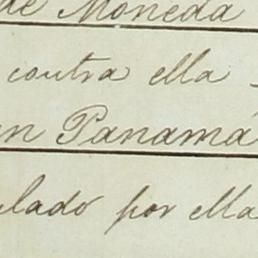 de Moneda
contra ella
en Panamá
lado por ella